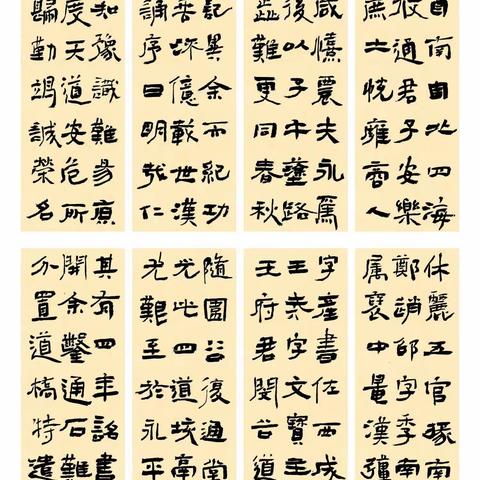 自南自北四海
攸通君子安樂
庶士悅雍商人
咸憘農夫永
後以子午塗路
歰難更同春秋
記異余而紀功
垂流億載世漢
誦序曰明哉仁
知豫識難易原
度天道安危所
歸勤竭誠榮名
休麗五官掾南
鄭趙邵字季南
屬褒中晁漢彊
字產書佐西成
王戒字文寶主
王府君閔谷道
隨圍谷復通堂
光此四道垓鬲
尤艱至於永平
其有四年詔書
開余鑿通石難
分置道橋特遣